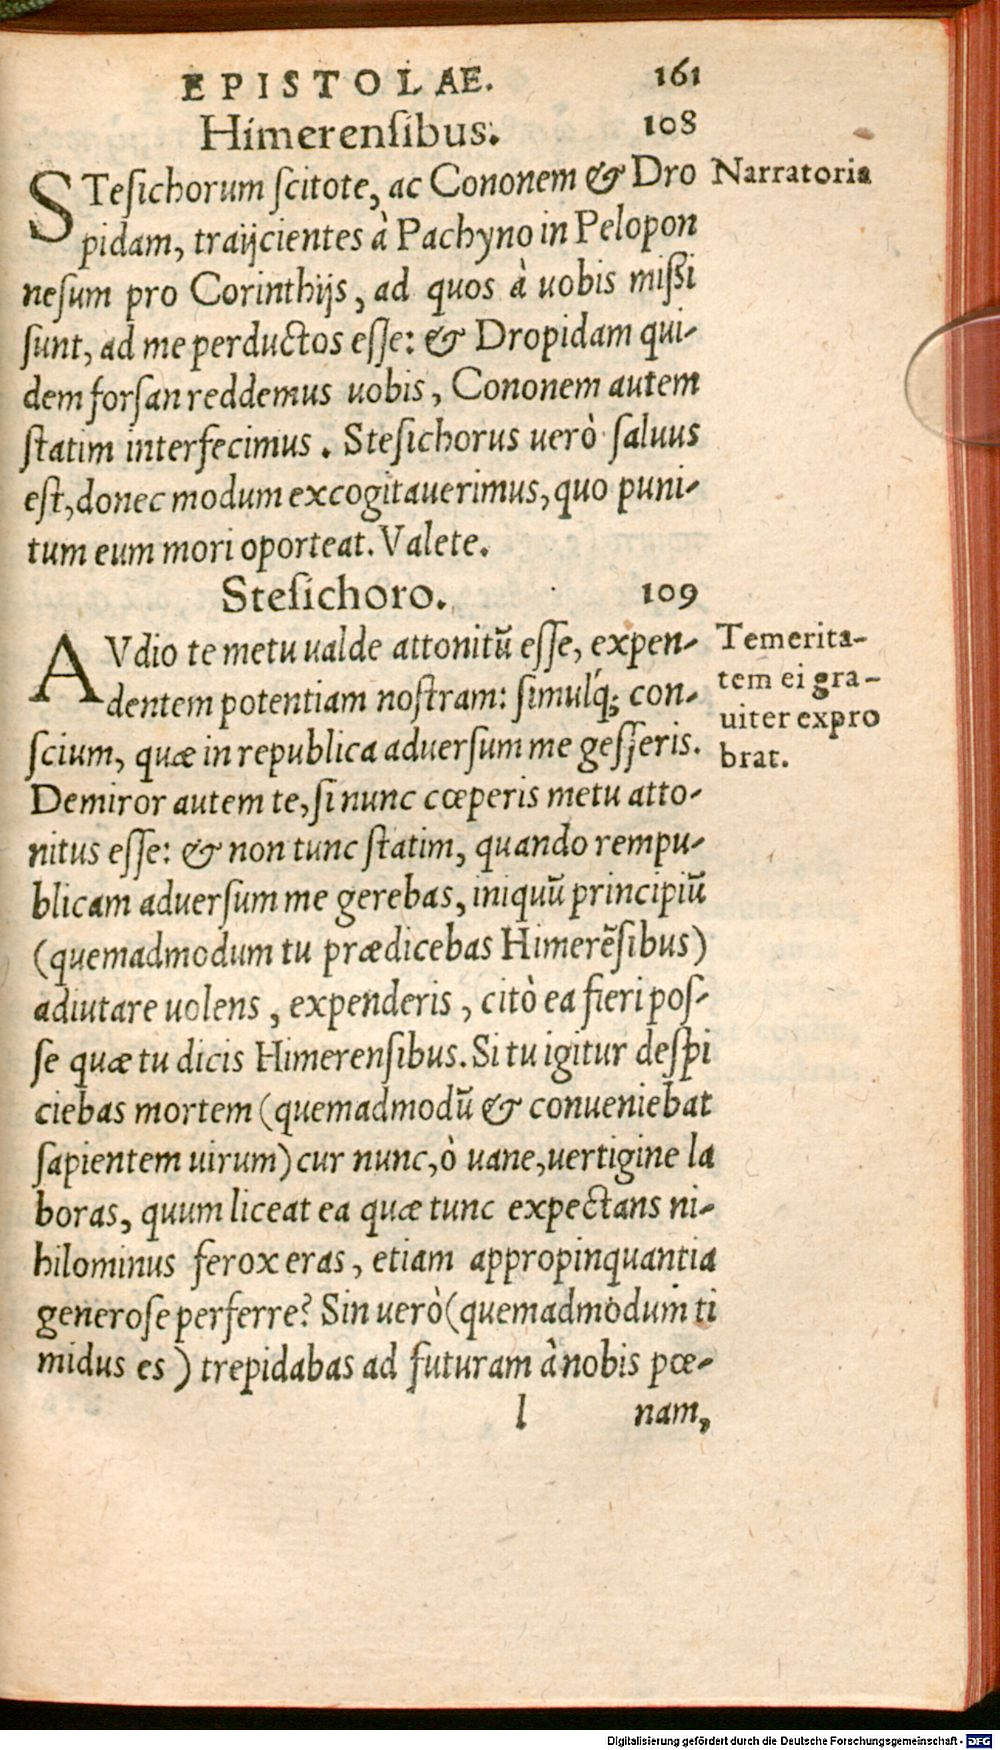 EPISTOLAE. 161
Himerenſibus. 108
STeſichorum ſcitote, ac Cononem & Dro
Narratoria
pidam, traijcientes à Pachyno in Pelopon
neſum pro Corinthijs, ad quos à uobis miſſi
ſunt, ad me perductos eſſe: & Dropidam qui-
dem forſan reddemus uobis, Cononem autem
ſtatim interfecimus. Steſichorus uerò ſaluus
eſt, donec modum excogitauerimus, quo puni-
tum eum mori oporteat. Valete.
Steſichoro. 109
AVdio te metu ualde attonitũ eſſe, expen-
dentem potentiam noſtram: ſimulq́; con-
ſcium, quæ in republica aduerſum me geſſeris.
Temerita-
tem ei gra-
uiter expro
brat.
Demiror autem te, ſi nunc cœperis metu atto-
nitus eſſe: & non tunc ſtatim, quando rempu-
blicam aduerſum me gerebas, iniquũ principiũ
(quemadmodum tu prædicebas Himerẽſibus)
adiutare uolens, expenderis, citò ea fieri poſ-
ſe quæ tu dicis Himerenſibus. Si tu igitur deſpi
ciebas mortem (quemadmodũ & conueniebat
ſapientem uirum) cur nunc, ò uane, uertigine la
boras, quum liceat ea quæ tunc expectans ni-
hilominus ferox eras, etiam appropinquantia
generoſe perferre? Sin uerò (quemadmodum ti
midus es) trepidabas ad futuram à nobis pœ-
l nam,
Digitalisierung gefördert durch die Deutsche Forschungsgemeinschaft - DFG